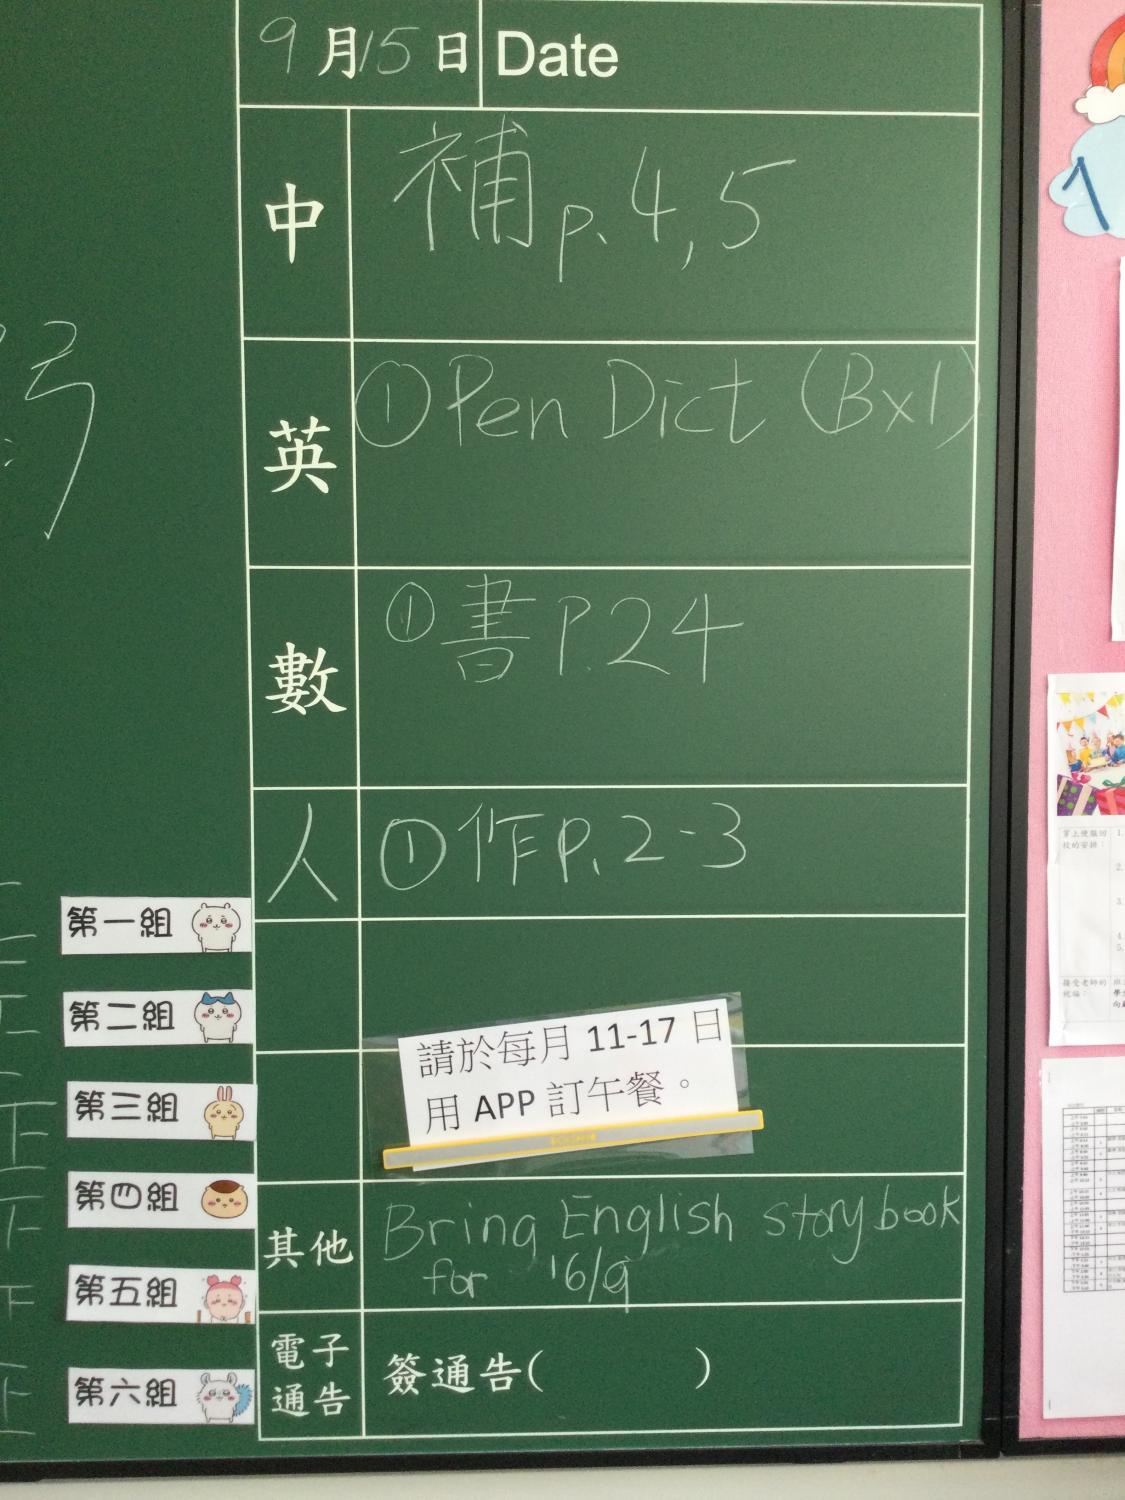 9月15日 Date
中 補 p.4,5
英 ①Pen Dict (Bx1)
數 ①書 P.24
人 ①作 p.2-3
第一組
第二組
第三組
第四組
第五組
第六組
請於每月 11-17 日
用 APP 訂午餐。
其他 Bring English storybook
for 16/9
電子
通告
簽通告( )
1